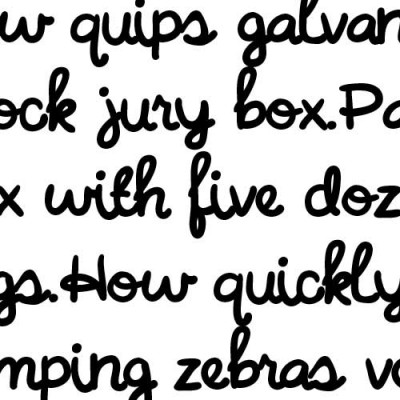 w quips galvan
ock jury box.Pa
x with five doz
gs.How quickly
mping zebras v